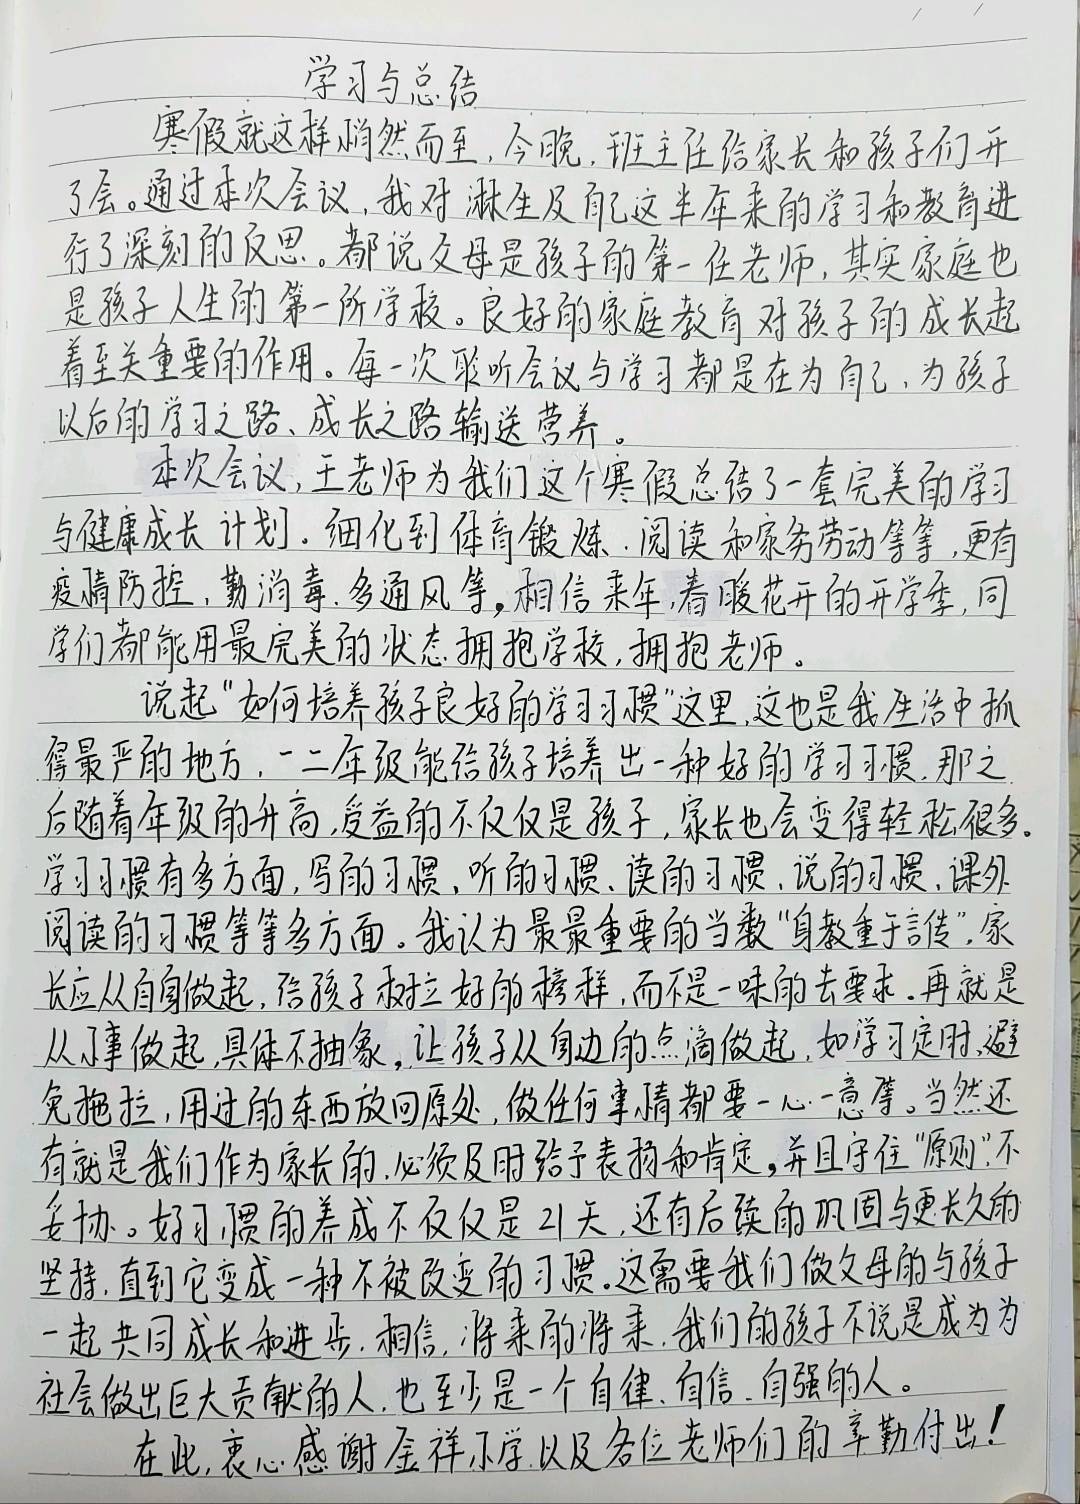 学习与总结
寒假就这样悄然而至，今晚，班主任给家长和孩子们开
了会。通过本次会议，我对淋生及自己这半年来的学习和教育进
行了深刻的反思。都说父母是孩子的第一任老师，其实家庭也
是孩子人生的第一所学校。良好的家庭教育对孩子的成长起
着至关重要的作用。每一次聆听会议与学习都是在为自己、为孩子
以后的学习之路、成长之路输送营养。
本次会议，王老师为我们这个寒假总结了一套完美的学习
与健康成长计划。细化到体育锻炼、阅读和家务劳动等等，更有
疫情防控，勤消毒、多通风等，相信来年，春暖花开的开学季，同
学们都能用最完美的状态拥抱学校，拥抱老师。
说起“如何培养孩子良好的学习习惯”这里，这也是我生活中抓
得最严的地方，一二年级能给孩子培养出一种好的学习习惯，那之
后随着年级的升高，受益的不仅仅是孩子，家长也会变得轻松很多。
学习习惯有多方面，写的习惯、听的习惯、读的习惯、说的习惯、课外
阅读的习惯等等多方面。我认为最最重要的当数“身教重于言传”，家
长应从自身做起，给孩子树立好的榜样，而不是一味的去要求。再就是
从小事做起，具体不抽象，让孩子从身边的点滴做起，如学习定时、避
免拖拉，用过的东西放回原处，做任何事情都要一心一意等。当然还
有就是我们作为家长的，必须及时给予表扬和肯定，并且守住“原则”，不
妥协。好习惯的养成不仅仅是21天，还有后续的巩固与更长久的
坚持，直到它变成一种不被改变的习惯。这需要我们做父母的与孩子
一起共同成长和进步，相信，将来的将来，我们的孩子不说是成为为
社会做出巨大贡献的人，也至少是一个自律、自信、自强的人。
在此，衷心感谢金祥小学以及各位老师们的辛勤付出！